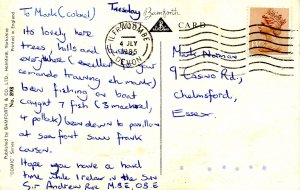 Tuesday
Bamforth
To Mark (cobol)
Its lovely here
trees, hills and
everywhere (excellent for your
comando training ehmark)
been fishing on boat
caught 7 fish (3 mackerel,
4 pollack) been down to pavillion
at sea front saw frank
carson.
Hope you have a hard
time while I relax in the Sun
Sir Andrew Roe M.B.E O.B.E
CARD
ILFRACOMBE
4 JLY
1985
DEVON
Mark Norman
9
Chelmsford,
Essex.
Published by BAMFORTH & CO. LTD., Holmfirth, Yorkshire
"COMIC" Series No. 898 Printed in England